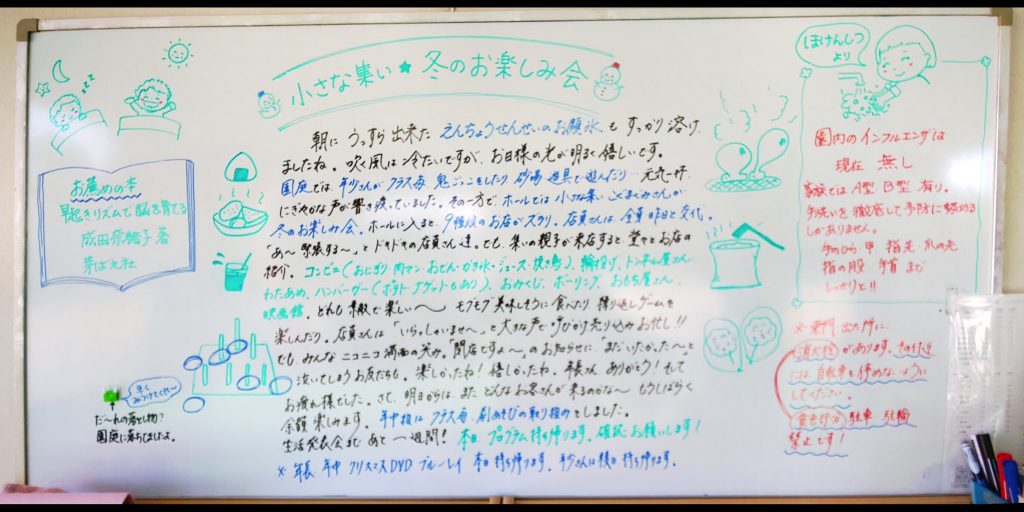 小さな集い★冬のお楽しみ会
朝に うっすら 出来た えんちょうせんせいのお願氷 も すっかり 溶け
ましたね。吹く風は冷たいですが、お日様の光が明るく嬉しいです。
園庭では、年少さんが クラス毎、鬼ごっこをしたり 砂場 遊具で遊んだり… 元気一杯
にぎやかな声が響き渡っていました。その一方で ホールでは 小さな集い
冬のお楽しみ会。ホールに入ると 9種類のお店がズラリ。店員さんは 全員 昨日と交代。
「あ〜 緊張する〜」と ドキドキの店員さん達。でも、集いの親子が来店すると、堂々とお店の
紹介。コンビニ(おにぎり・肉マン・おでん・かき氷・ジュース・焼き鳥)、輪投げ、トンネル屋さん
わたあめ、ハンバーガー(ポテト・ナゲットもあり)、おみくじ、ボーリング、おもち屋さん
映画館。どれも 素敵で 楽しい〜 モグモグ 美味しそうに食べたり 繰り返しゲームを
楽しんだり。店員さんは「いらっしゃいませ〜」と 大きな声で呼びかけ 売り込み お忙し!!
でも、みんな ニコニコ 満面の笑み。「閉店ですよ〜」の お知らせに「まだいたかった〜」と
泣いてしまうお友だちも。楽しかったね! 嬉しかったね。年長さん ありがとう! そして
お疲れ様でした。さて、明日からは、また どんなお客さんが 来るのかな〜 もうしばらく
余韻 楽しみます。年中組は クラス毎 劇あそびの取り組みをしました。
生活発表会まで あと 一週間! 本日 プログラム持ち帰ります。確認 お願いします!
※ 年長 年中 クリスマスDVD ブルーレイ 本日 持ち帰ります。年少さんは後日 持ち帰ります。
お薦めの本
早起きリズムで脳を育てる
成田奈緒子 著
芽ばえ社
早く
みつけてくれ〜
だ〜れの落とし物?
園庭に落ちてましたよ。
ほけんしつ
より
園内のインフルエンザは
現在 無し
家族では A型 B型 有り。
手洗いを 徹底して 予防に務める
しかありません。
手のひら・甲 指先 爪の先
指の股 手首 まで
しっかりと!!
※ 東門 出た所に
消火栓 があります。そのあたり
には 自転車を停めないように
してください。
黄色部分 駐車 駐輪
禁止です!